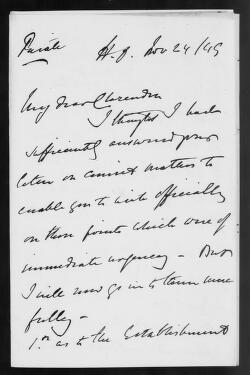 Private H.O. Nov 24/49
My dear Clarendon
I thought I had
sufficiently answered your
letters on convict matters to
enable you to write officially
on those points which were of
immediate urgency - But
I will now go into them more
fully -
1st as to the Establishment